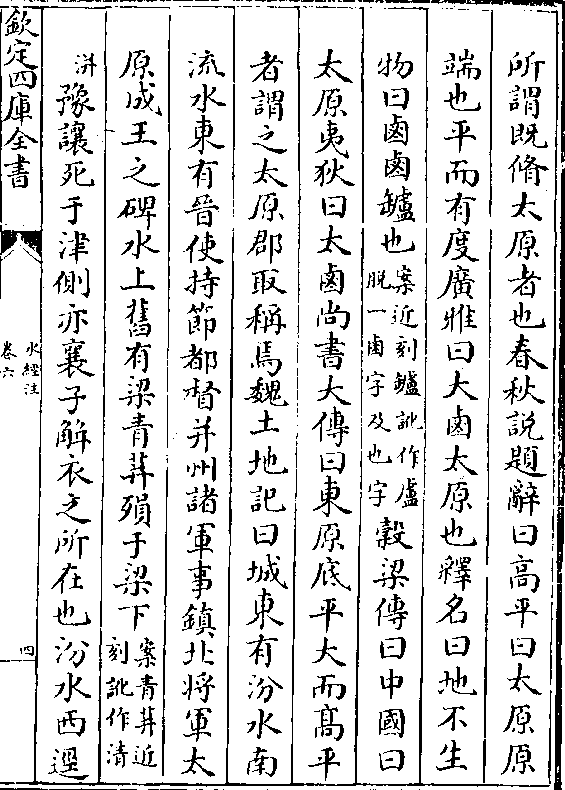 所謂既脩太原者也春秋說題辭曰高平曰太原原
端也平而有度廣雅曰大鹵太原也釋名曰地不生
物曰鹵鹵鑪也案近刻鑪訛作盧脫一鹵字及也字穀梁傳曰中國曰
太原夷狄曰大鹵尚書大傳曰東原底平大而髙平
者謂之太原郡取稱焉魏土地記曰城東有汾水南
流水東有晉使持節都督并州諸軍事鎮北將軍太
原成王之碑水上舊有梁青荓殞于梁下案青荓近刻訛作清
洴豫讓死于津側亦襄子解衣之所在也汾水西逕
欽定四庫全書
水經注
卷六
四